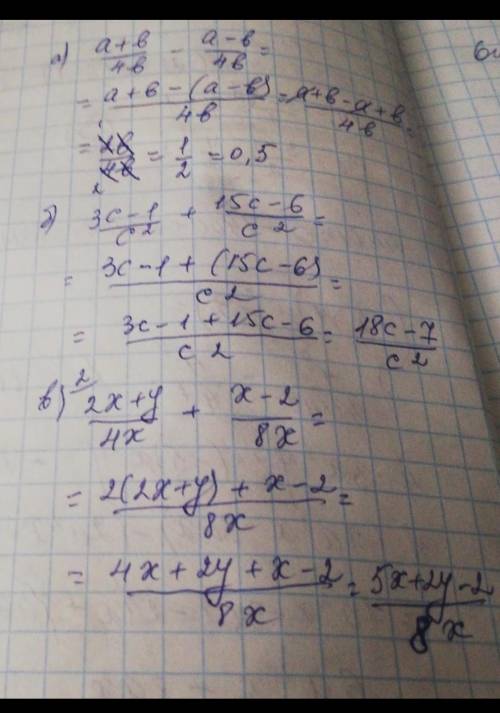 а) (a+b)/4b − (a−b)/4b =
= (a+b−(a−b))/4b = (a+b−a+b)/4b =
= 2b/4b = 1/2 = 0,5
б) (3c−1)/c² + (15c−6)/c² =
= (3c−1+(15c−6))/c² =
= (3c−1+15c−6)/c² = (18c−7)/c²
в) ²⁄ (2x+y)/4x + (x−2)/8x =
= (2(2x+y)+x−2)/8x =
= (4x+2y+x−2)/8x = (5x+2y−2)/8x